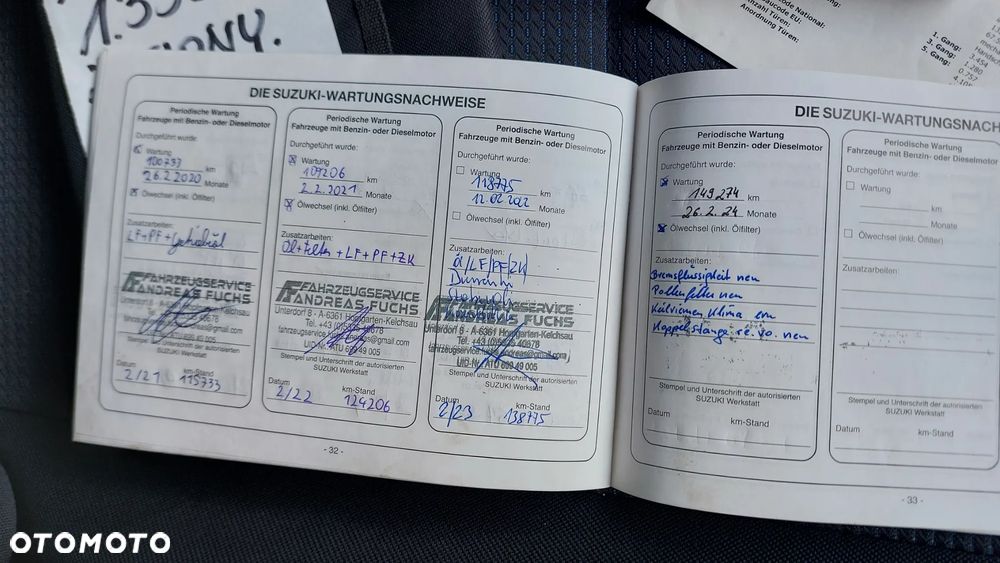 ZIONY.
code National:
Baucode EU:
Anzahl Türen:
Anordnung Türen:
1. Gang:
3. Gang:
5. Gang:
3.454
1.280
0.757
DIE SUZUKI-WARTUNGSNACHWEISE
Periodische Wartung
Fahrzeuge mit Benzin- oder Dieselmotor
Durchgeführt wurde:
Wartung
100733 km
26.2.2020 Monate
Ölwechsel (inkl. Ölfilter)
Zusatzarbeiten:
LF+PF+Getriebeöl
FAHRZEUGSERVICE
ANDREAS FUCHS
Unterdorf 8 - A-6361 Hopfgarten-Kelchsau
Stempel und Unterschrift der autorisierten
SUZUKI Werkstatt
Datum km-Stand
2/21 115733
Periodische Wartung
Fahrzeuge mit Benzin- oder Dieselmotor
Durchgeführt wurde:
Wartung
109206 km
2.2.2021 Monate
Ölwechsel (inkl. Ölfilter)
Zusatzarbeiten:
Öl+Filter+LF+PF+ZK
FAHRZEUGSERVICE
ANDREAS FUCHS
Unterdorf 8 - A-6361 Hopfgarten-Kelchsau
UID-Nr. ATU 699 49 005
Stempel und Unterschrift der autorisierten
SUZUKI Werkstatt
Datum km-Stand
2/22 124206
Periodische Wartung
Fahrzeuge mit Benzin- oder Dieselmotor
Durchgeführt wurde:
Wartung
118775 km
12.02.2022 Monate
Ölwechsel (inkl. Ölfilter)
Zusatzarbeiten:
Öl/LF/PF/ZK
FAHRZEUGSERVICE
ANDREAS FUCHS
Unterdorf 8 - A-6361 Hopfgarten-Kelchsau
UID-Nr. ATU 699 49 005
Stempel und Unterschrift der autorisierten
SUZUKI Werkstatt
Datum km-Stand
2/23 138775
- 32 -
DIE SUZUKI-WARTUNGSNACH
Periodische Wartung
Fahrzeuge mit Benzin- oder Dieselmotor
Durchgeführt wurde:
Wartung
149274 km
26.2.24 Monate
Ölwechsel (inkl. Ölfilter)
Zusatzarbeiten:
Bremsflüssigkeit neu
Pollenfilter neu
Klima
Koppelstange re. vo. neu
Stempel und Unterschrift der autorisierten
SUZUKI Werkstatt
Datum km-Stand
Periodische Wartung
Fahrzeuge mit Benzin- oder Dieselmotor
Durchgeführt wurde:
Wartung
km
Monate
Ölwechsel (inkl. Ölfilter)
Zusatzarbeiten:
Stempel und Unterschrift der autorisierten
SUZUKI Werkstatt
Datum km-Stand
- 33 -
OTOMOTO